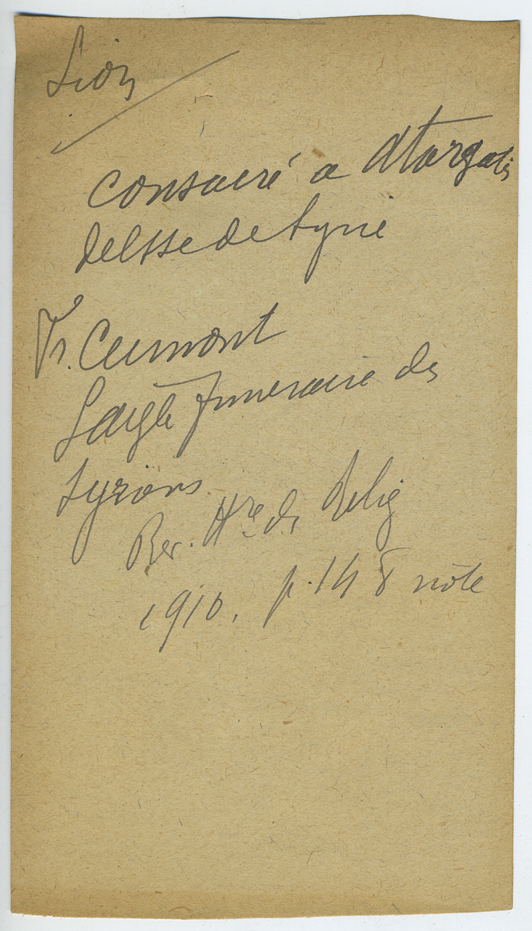 Lion
consacré a Atargatis
déesse de Syrie
Fr. Cumont
L'aigle funeraire des
Syriens
Rev. Hre ds Relig
1910. p. 148 note